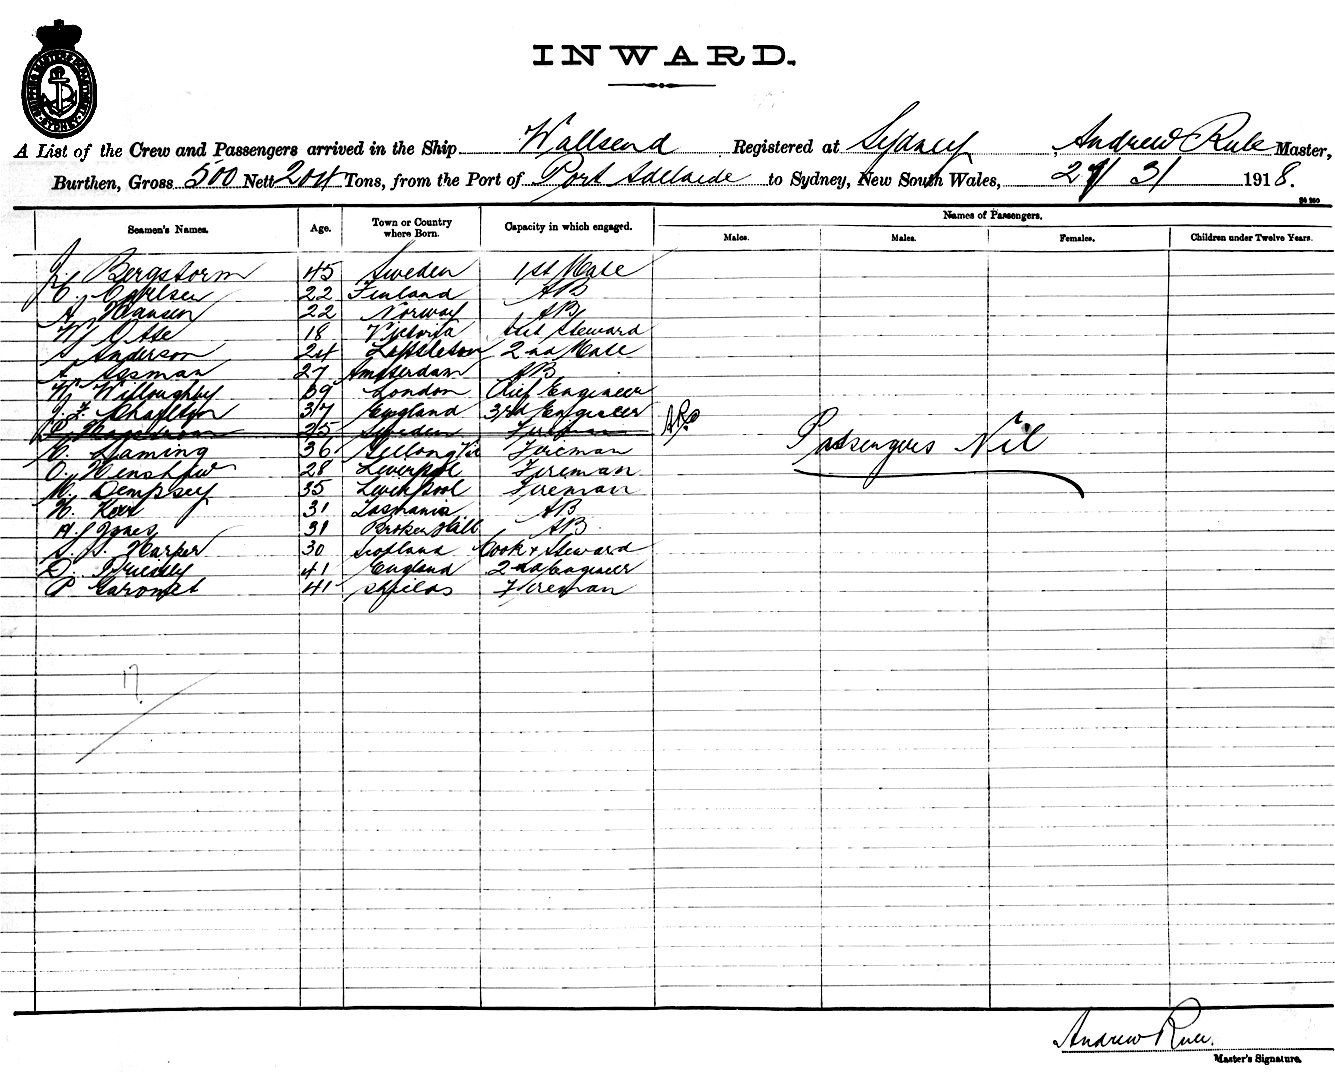 SHIPPING MASTERS DEPARTMENT SYDNEY
INWARD.
A List of the Crew and Passengers arrived in the Ship Wallsend Registered at Sydney, Andrew Rule Master,
Burthen, Gross 500 Nett 204 Tons, from the Port of Port Adelaide to Sydney, New South Wales, 31 1918.
Seamen's Names. Age. Town or Country where Born. Capacity in which engaged. Names of Passengers.
Males. Males. Females. Children under Twelve Years.
Bergstorm 45 Sweden 1st Mate
22 Finland AB
A Hansen 22 Norway AB
W 18 Victoria Steward
S Anderson 24 2nd Mate
A Assman 27 Amsterdam AB
W Willoughby 39 London Chief Engineer
J. F. Charlton 37 England 3rd Engineer
P Hagstrom 25 Sweden Fireman ARo
C Laming 36 Geelong Vic Fireman
O. Henshaw 28 Liverpool Fireman
M. Dempsey 35 Liverpool Fireman
H. Kerr 31 Tasmania AB
A. J Jones 31 Broken Hill AB
S. J. Harper 30 Scotland Cook & Steward
D. Priestly 41 England 2nd Engineer
P 41 Shields Fireman
Passengers Nil
17
Andrew Rule.
Master's Signature.